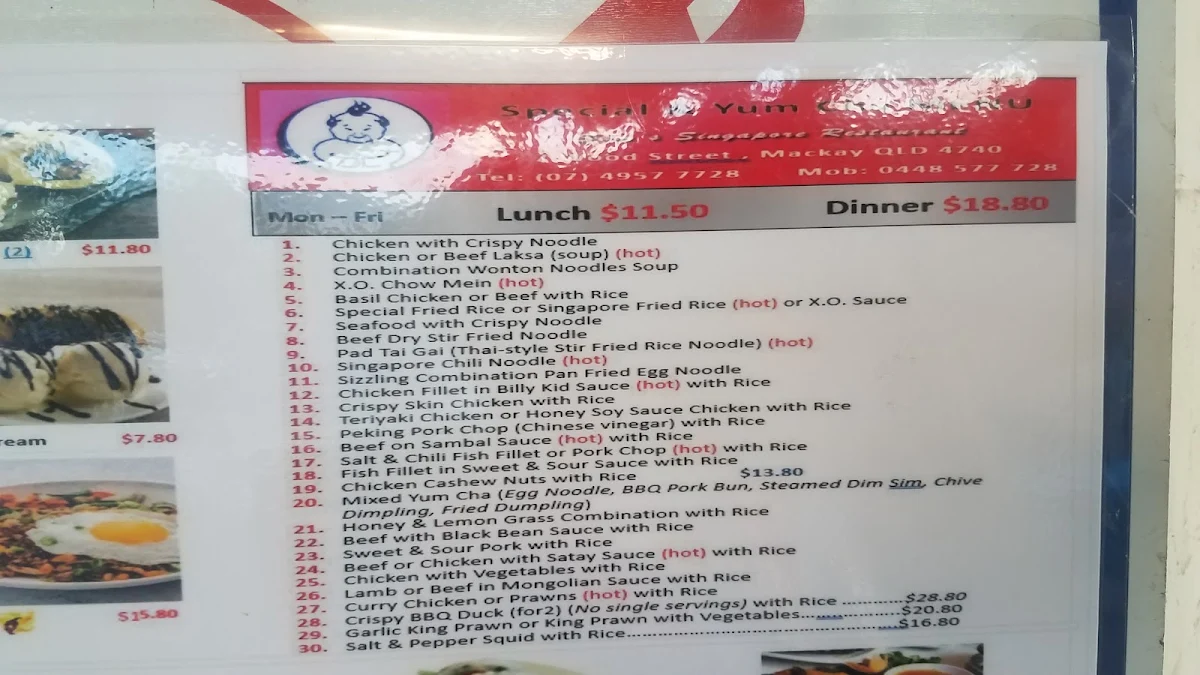 Special & Yum Cha MENU
Singapore Restaurant
Street, Mackay QLD 4740
Tel: (07) 4957 7728 Mob: 0448 577 728
Mon – Fri Lunch $11.50 Dinner $18.80
1. Chicken with Crispy Noodle
2. Chicken or Beef Laksa (soup) (hot)
3. Combination Wonton Noodles Soup
4. X.O. Chow Mein (hot)
5. Basil Chicken or Beef with Rice
6. Special Fried Rice or Singapore Fried Rice (hot) or X.O. Sauce
7. Seafood with Crispy Noodle
8. Beef Dry Stir Fried Noodle
9. Pad Tai Gai (Thai-style Stir Fried Rice Noodle) (hot)
10. Singapore Chili Noodle (hot)
11. Sizzling Combination Pan Fried Egg Noodle
12. Chicken Fillet in Billy Kid Sauce (hot) with Rice
13. Crispy Skin Chicken with Rice
14. Teriyaki Chicken or Honey Soy Sauce Chicken with Rice
15. Peking Pork Chop (Chinese vinegar) with Rice
16. Beef on Sambal Sauce (hot) with Rice
17. Salt & Chili Fish Fillet or Pork Chop (hot) with Rice
18. Fish Fillet in Sweet & Sour Sauce with Rice
19. Chicken Cashew Nuts with Rice $13.80
20. Mixed Yum Cha (Egg Noodle, BBQ Pork Bun, Steamed Dim Sim, Chive
Dimpling, Fried Dumpling)
21. Honey & Lemon Grass Combination with Rice
22. Beef with Black Bean Sauce with Rice
23. Sweet & Sour Pork with Rice
24. Beef or Chicken with Satay Sauce (hot) with Rice
25. Chicken with Vegetables with Rice
26. Lamb or Beef in Mongolian Sauce with Rice
27. Curry Chicken or Prawns (hot) with Rice
28. Crispy BBQ Duck (for2) (No single servings) with Rice ...........$28.80
29. Garlic King Prawn or King Prawn with Vegetables....................$20.80
30. Salt & Pepper Squid with Rice.................................................$16.80
(2) $11.80
ream $7.80
$15.80